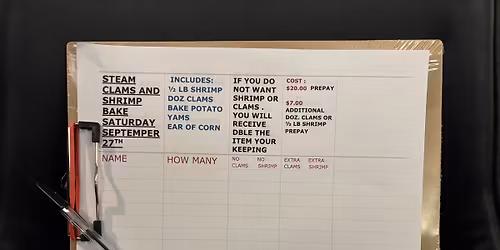 STEAM
CLAMS AND
SHRIMP
BAKE
SATURDAY
SEPTEMPER
27TH
INCLUDES:
½ LB SHRIMP
DOZ CLAMS
BAKE POTATO
YAMS
EAR OF CORN
IF YOU DO
NOT WANT
SHRIMP OR
CLAMS .
YOU WILL
RECEIVE
DBLE THE
ITEM YOUR
KEEPING
COST :
$20.00 PREPAY
$7.00
ADDITIONAL
DOZ. CLAMS OR
½ LB SHRIMP
PREPAY
NAME
HOW MANY
NO
CLAMS
NO
SHRIMP
EXTRA
CLAMS
EXTRA
SHRIMP